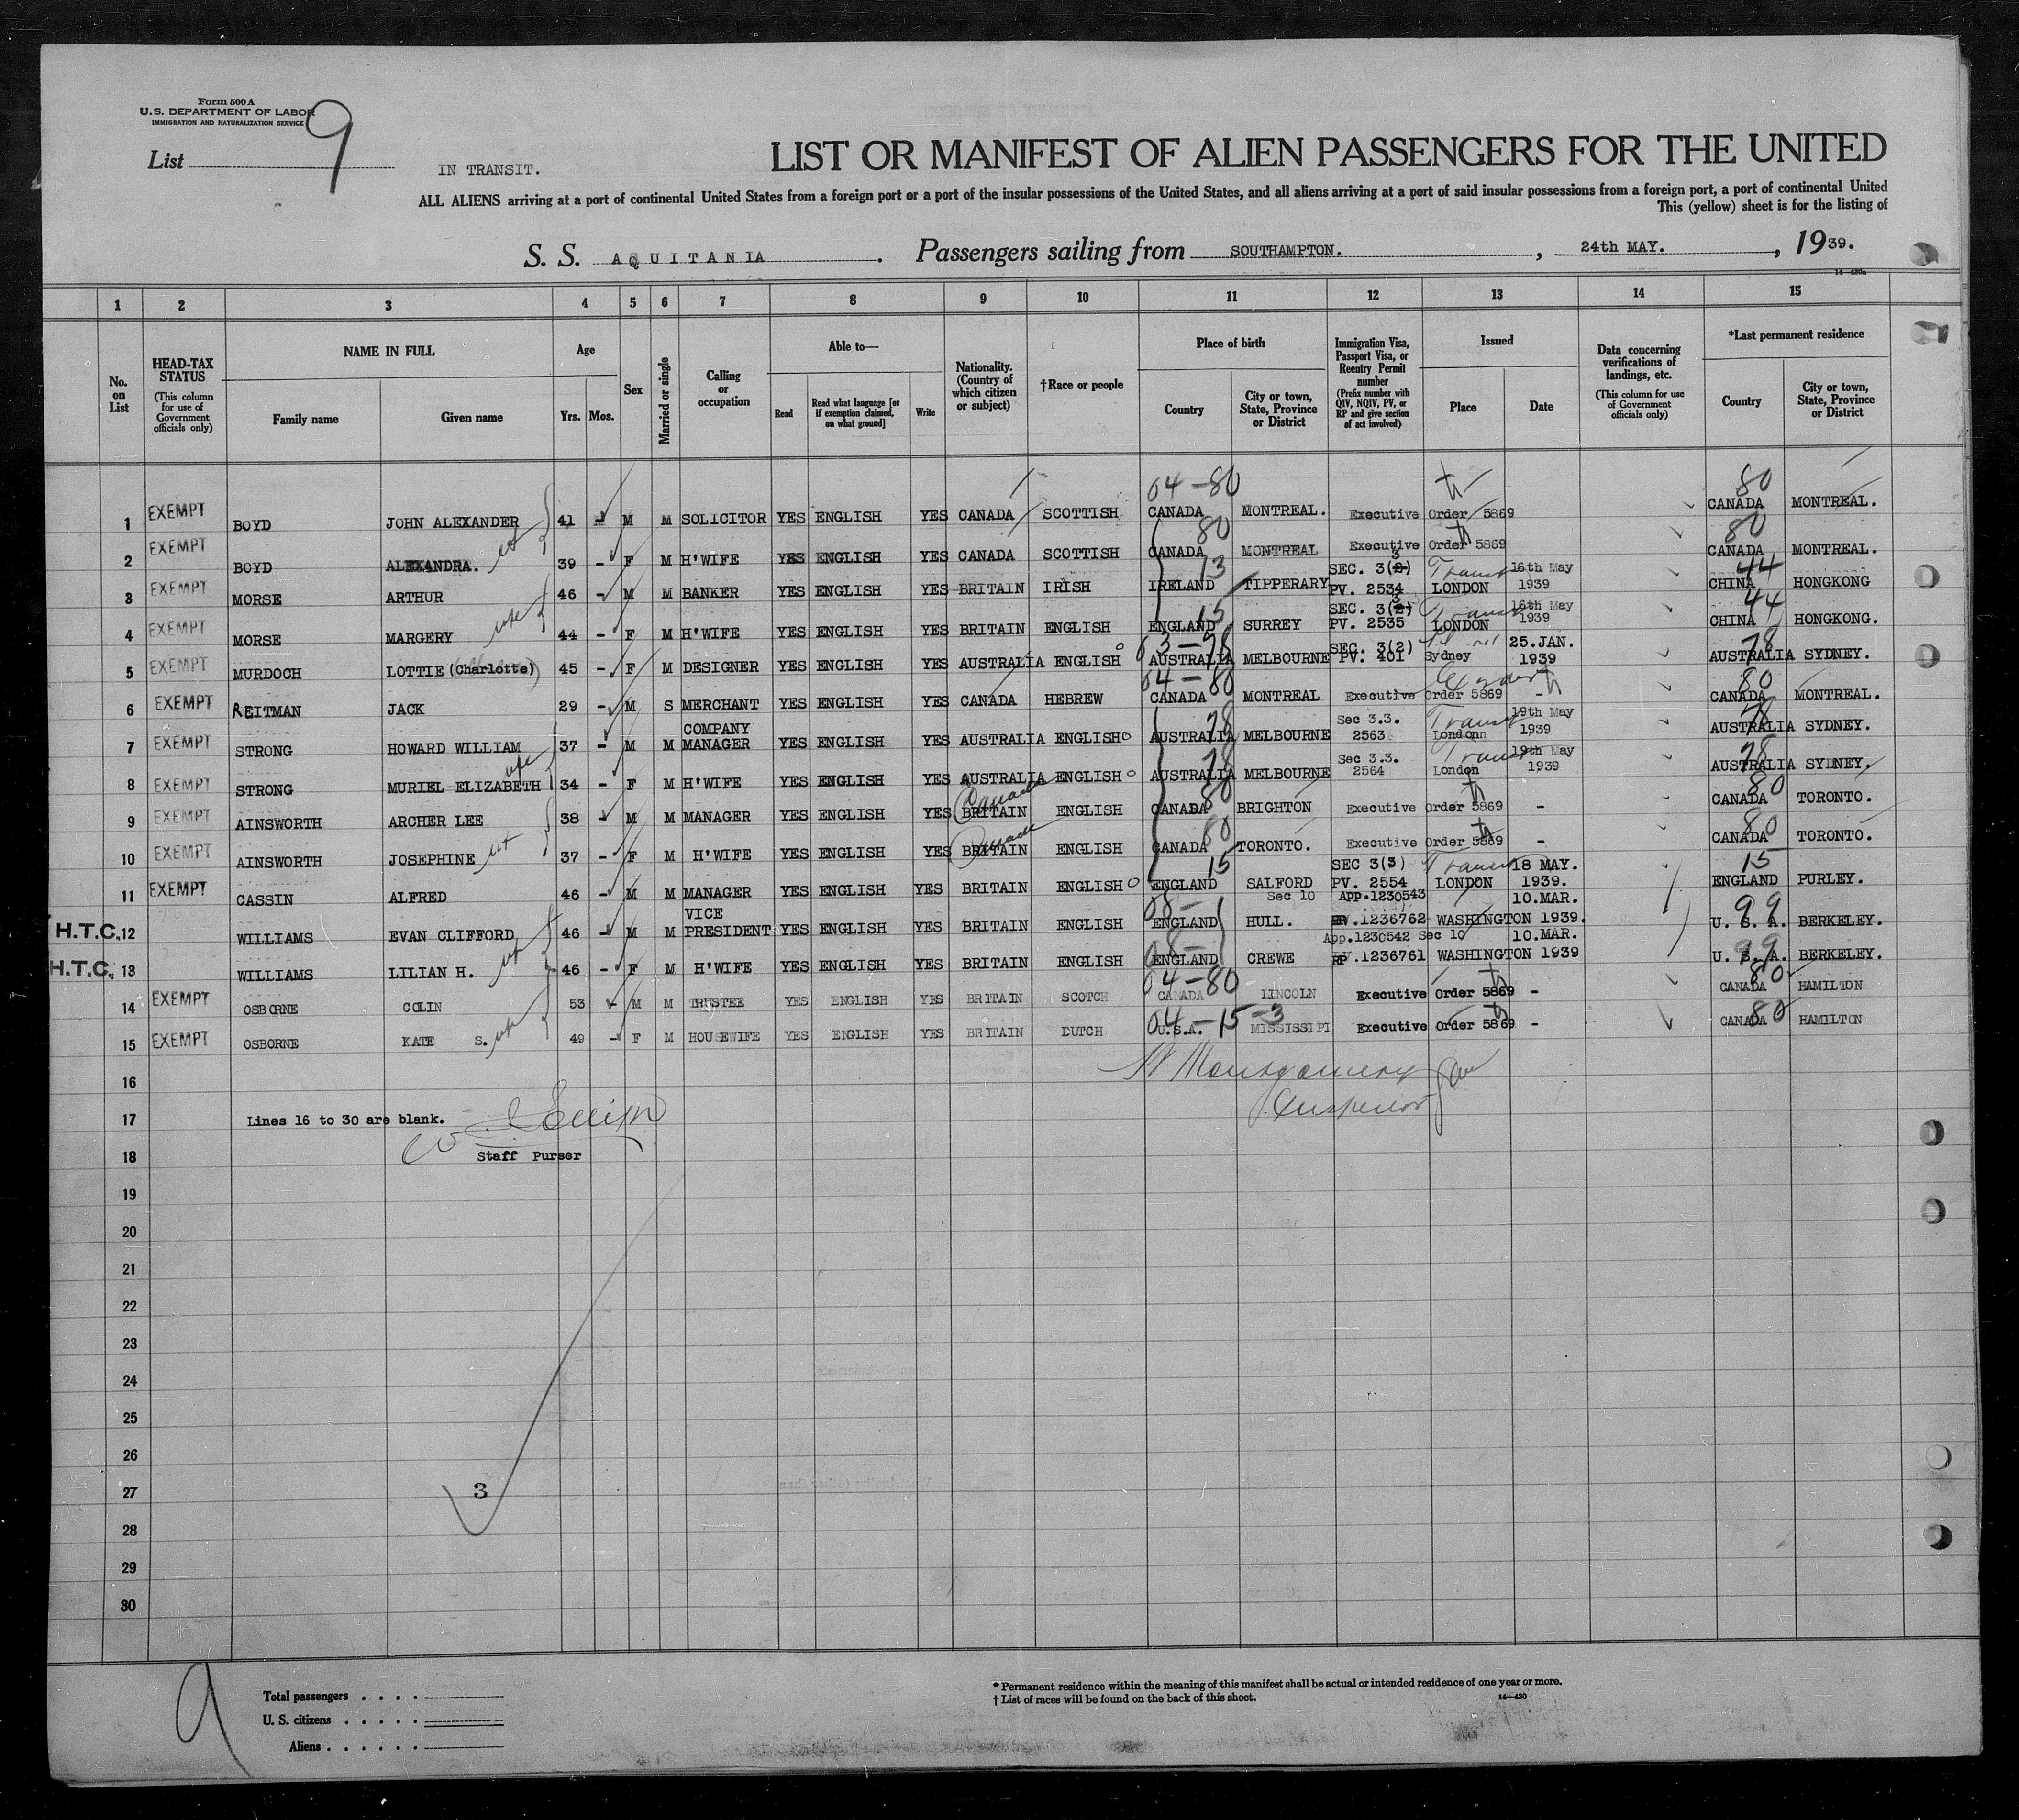 Form 500 A
U.S. DEPARTMENT OF LABOR
IMMIGRATION AND NATURALIZATION SERVICE
List 9
IN TRANSIT.
LIST OR MANIFEST OF ALIEN PASSENGERS FOR THE UNITED
ALL ALIENS arriving at a port of continental United States from a foreign port or a port of the insular possessions of the United States, and all aliens arriving at a port of said insular possessions from a foreign port, a port of continental United
This (yellow) sheet is for the listing of
S. S. AQUITANIA. Passengers sailing from SOUTHAMPTON., 24th MAY., 1939.
14—430a
1 2 3 4 5 6 7 8 9 10 11 12 13 14 15
No. on List
HEAD-TAX STATUS (This column for use of Government officials only)
NAME IN FULL Family name Given name
Age Yrs. Mos.
Sex
Married or single
Calling or occupation
Able to— Read Read what language [or if exemption claimed, on what ground] Write
Nationality. (Country of which citizen or subject)
†Race or people
Place of birth Country City or town, State, Province or District
Immigration Visa, Passport Visa, or Reentry Permit number (Prefix number with QIV, NQIV, PV, or RP and give section of act involved)
Issued Place Date
Data concerning verifications of landings, etc. (This column for use of Government officials only)
*Last permanent residence Country City or town, State, Province or District
04-80 80
1 EXEMPT BOYD JOHN ALEXANDER 41 - M M SOLICITOR YES ENGLISH YES CANADA SCOTTISH CANADA MONTREAL. Executive Order 5869 CANADA MONTREAL.
80 80
2 EXEMPT BOYD ALEXANDRA. 39 - F M H'WIFE YES ENGLISH YES CANADA SCOTTISH CANADA MONTREAL Executive Order 5869 CANADA MONTREAL.
13 SEC. 3(2) 3 Transit 16th May 44
3 EXEMPT MORSE ARTHUR 46 - M M BANKER YES ENGLISH YES BRITAIN IRISH IRELAND TIPPERARY PV. 2534 LONDON 1939 CHINA HONGKONG
15 SEC. 3(2) 3 Transit 16th May 44
4 EXEMPT MORSE MARGERY 44 - F M H'WIFE YES ENGLISH YES BRITAIN ENGLISH ENGLAND SURREY PV. 2535 LONDON 1939 CHINA HONGKONG.
03-78 SEC. 3(2) 25.JAN. 78
5 EXEMPT MURDOCH LOTTIE (Charlotte) 45 - F M DESIGNER YES ENGLISH YES AUSTRALIA ENGLISH AUSTRALIA MELBOURNE PV. 401 Sydney 1939 AUSTRALIA SYDNEY.
04-80 80
6 EXEMPT REITMAN JACK 29 - M S MERCHANT YES ENGLISH YES CANADA HEBREW CANADA MONTREAL Executive Order 5869 - CANADA MONTREAL.
78 Sec 3.3. Transit 19th May 78
7 EXEMPT STRONG HOWARD WILLIAM 37 - M M COMPANY MANAGER YES ENGLISH YES AUSTRALIA ENGLISH AUSTRALIA MELBOURNE 2563 London 1939 AUSTRALIA SYDNEY.
78 Sec 3.3. Transit 19th May 78
8 EXEMPT STRONG MURIEL ELIZABETH 34 - F M H'WIFE YES ENGLISH YES AUSTRALIA ENGLISH AUSTRALIA MELBOURNE 2564 London 1939 AUSTRALIA SYDNEY.
Canada 80 80
9 EXEMPT AINSWORTH ARCHER LEE 38 - M M MANAGER YES ENGLISH YES BRITAIN ENGLISH CANADA BRIGHTON Executive Order 5869 - CANADA TORONTO.
Canada 80 80
10 EXEMPT AINSWORTH JOSEPHINE 37 - F M H'WIFE YES ENGLISH YES BRITAIN ENGLISH CANADA TORONTO. Executive Order 5869 - CANADA TORONTO.
15 SEC 3(3) Transit 18 MAY. 15
11 EXEMPT CASSIN ALFRED 46 - M M MANAGER YES ENGLISH YES BRITAIN ENGLISH ENGLAND SALFORD PV. 2554 LONDON 1939. ENGLAND PURLEY.
08- Sec 10 App.1230543 10.MAR. 99
H.T.C. 12 WILLIAMS EVAN CLIFFORD 46 - M M VICE PRESIDENT YES ENGLISH YES BRITAIN ENGLISH ENGLAND HULL. RP.1236762 WASHINGTON 1939. U. S. A. BERKELEY.
08- App.1230542 Sec 10 10.MAR. 99
H.T.C. 13 WILLIAMS LILIAN H. 46 - F M H'WIFE YES ENGLISH YES BRITAIN ENGLISH ENGLAND CREWE RP.1236761 WASHINGTON 1939 U. S. A. BERKELEY.
04-80 80
14 EXEMPT OSBORNE COLIN 53 - M M TRUSTEE YES ENGLISH YES BRITAIN SCOTCH CANADA LINCOLN Executive Order 5869 - CANADA HAMILTON
04-15-3 80
15 EXEMPT OSBORNE KATE S. 49 - F M HOUSEWIFE YES ENGLISH YES BRITAIN DUTCH U.S.A. MISSISSIPI Executive Order 5869 - CANADA HAMILTON
16
Montgomery
Inspector
17 Lines 16 to 30 are blank.
18 Staff Purser
19
20
21
22
23
24
25
26
27 3
28
29
30
9
Total passengers
U. S. citizens
Aliens
* Permanent residence within the meaning of this manifest shall be actual or intended residence of one year or more.
† List of races will be found on the back of this sheet.
14—430